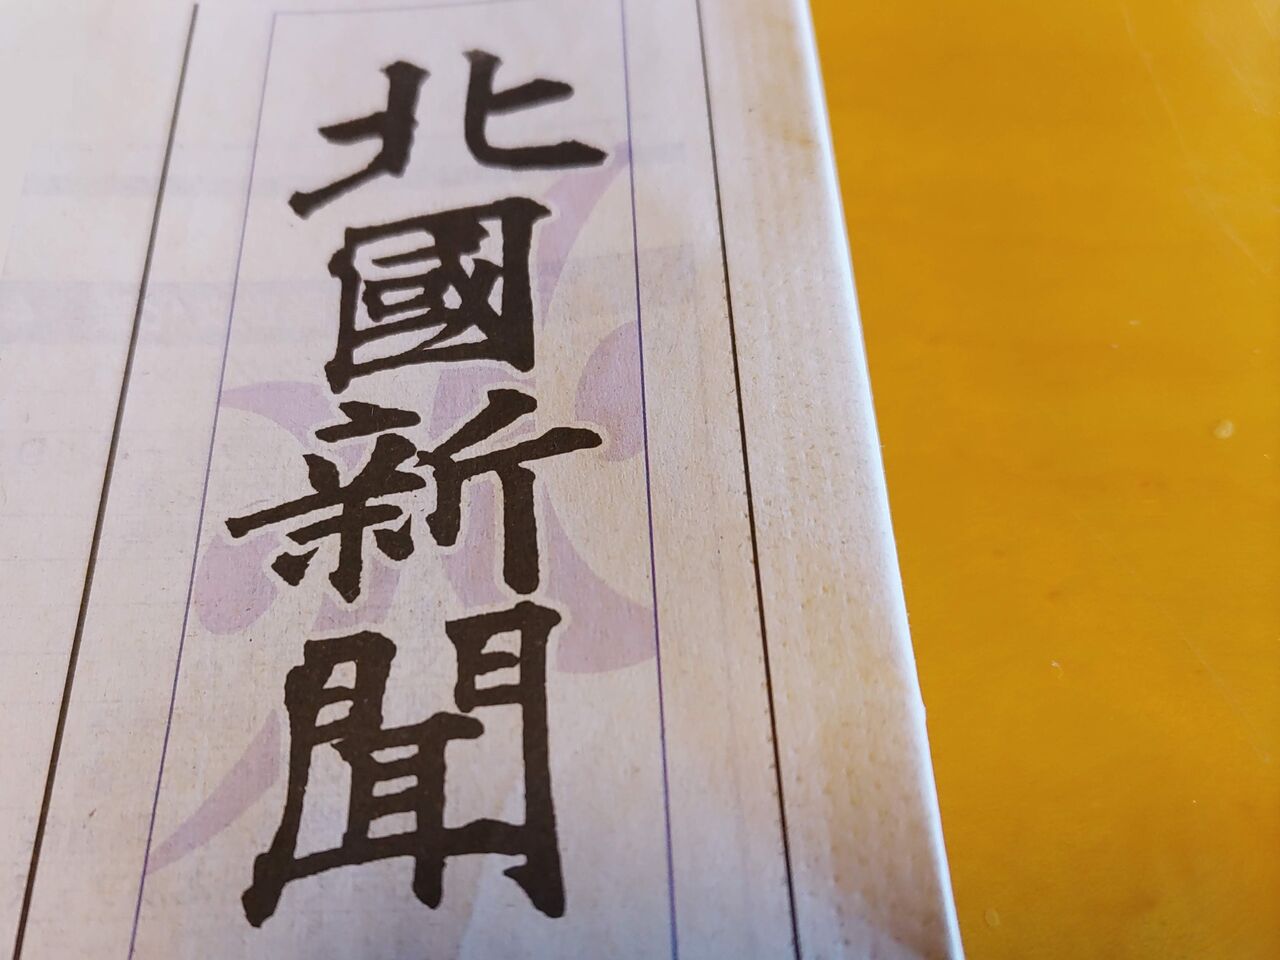 北國新聞